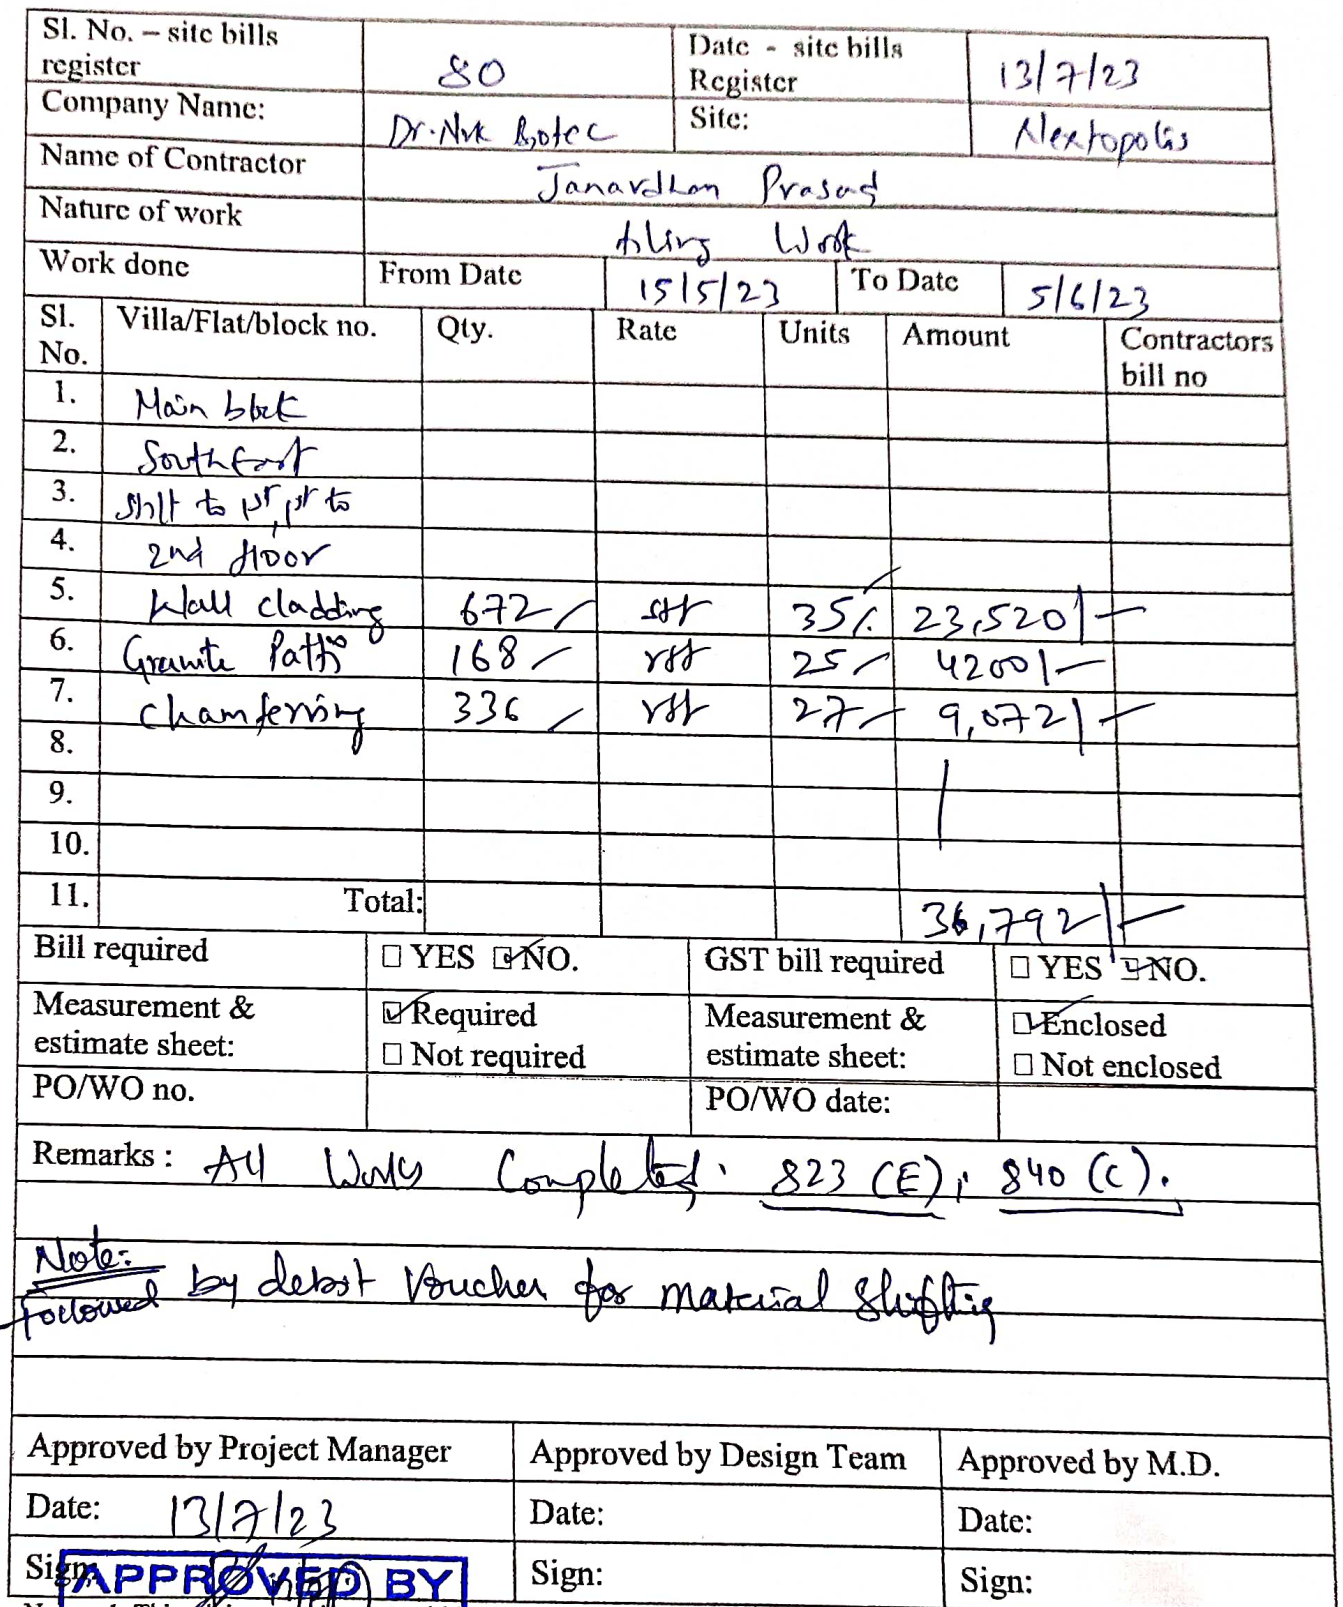 Sl. No. – site bills register 80 Date - site bills Register 13/7/23
Company Name: Dr. Nrk Biotec Site: Nextopolis
Name of Contractor Janardhan Prasad
Nature of work tiling Work
Work done From Date 15/5/23 To Date 5/6/23
Sl. No. Villa/Flat/block no. Qty. Rate Units Amount Contractors bill no
1. Main block
2. South East
3. Stilt to 1st, 1st to
4. 2nd floor
5. Wall cladding 672 sft 35/- 23,520/-
6. Granite Patti 168 rft 25/- 4200/-
7. Chamfering 336 rft 27/- 9,072/-
8.
9.
10.
11. Total: 36,792/-
Bill required YES NO. GST bill required YES NO.
Measurement & estimate sheet: Required Not required Measurement & estimate sheet: Enclosed Not enclosed
PO/WO no. PO/WO date:
Remarks : All Works Completed. 823 (E), 840 (C).
Note:
Followed by debit Voucher for material Shifting
Approved by Project Manager Approved by Design Team Approved by M.D.
Date: 13/7/23 Date: Date:
Sign: Sign: Sign:
APPROVED BY